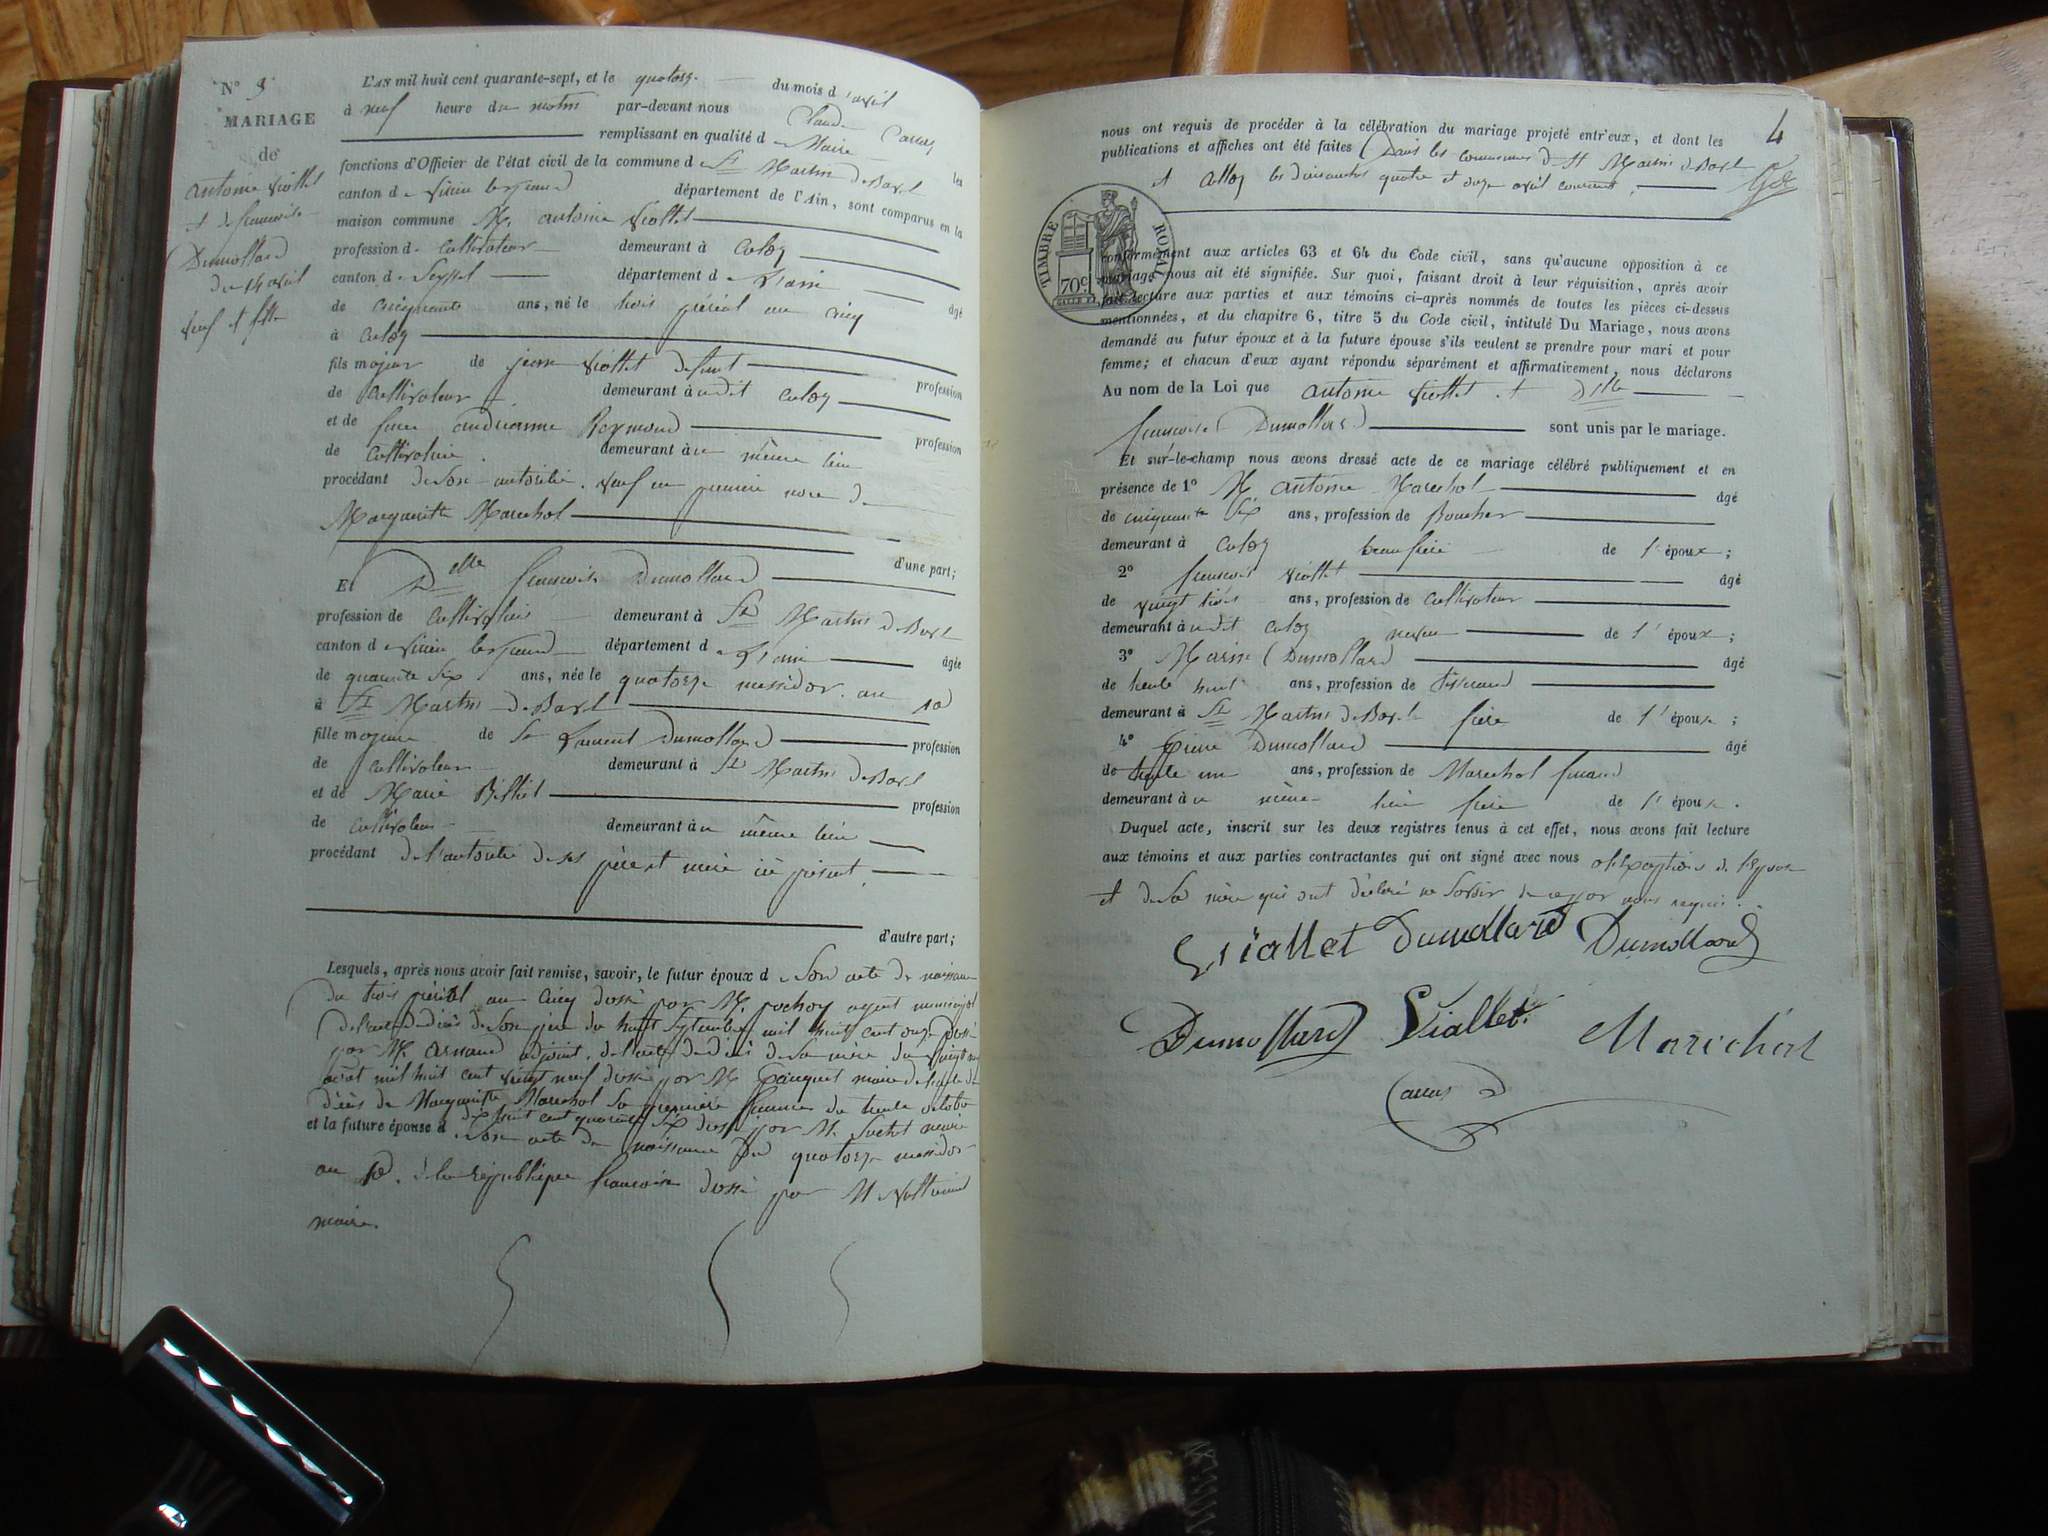 N° 3
MARIAGE
de
antoine Viollet
et de francoise
Dumollard
du 14 avril
veuf et fille
L'AN mil huit cent quarante-sept, et le quatorze du mois d'avril
à neuf heure du matin par-devant nous Claude
remplissant en qualité de Maire les
fonctions d'Officier de l'état civil de la commune de St Martin de Bavel
canton de virieu le grand département de l'Ain, sont comparus en la
maison commune M. antoine Viollet
profession de Cultivateur demeurant à Culoz
canton de Seyssel département de L'ain âgé
de cinquante ans, né le trois prérial an cinq
à Culoz
fils majeur de jean Viollet defunt profession
de Cultivateur demeurant à udit Culoz
et de feue andrianne Reymond profession
de Cultivatrice demeurant à u même lieu
procédant de son autorité. veuf en premiere noce de
Marguerite Marechal
d'une part;
Et Delle francoise Dumollard
profession de Cultivatrice demeurant à St Martin de Bavel
canton de virieu le grand département de L'ain âgée
de quarante six ans, née le quatorze messidor an 10
à St Martin de Bavel
fille majeure de Sr Laurent Dumollard profession
de Cultivateur demeurant à St Martin de Bavel
et de Marie Billiet profession
de Cultivateur demeurant à u même lieu
procédant de l'autorité de ses père et mère ici présent
d'autre part;
Lesquels, après nous avoir fait remise, savoir, le futur époux de Son acte de naissance
du trois prérial an cinq dressé par M. pochoy agent municipal
de l'acte de décès de Son père du huit Septembre mil huit cent onze dressé
par M. Arnaud adjoint, de l'acte de décès de Sa mère du vingt
août mil huit cent vingt neuf dressé par M maire de l'acte de
décès de Marguerite Marechal Sa première femme du trente octobre
dix huit cent quarante six dressé par M. Suchet maire
et la future épouse de Son acte de naissance du quatorze messidor
an 10. de la république francaise dressé par M
maire.
4
nous ont requis de procéder à la célébration du mariage projeté entr'eux, et dont les
publications et affiches ont été faites Dans les communes de St Martin de Bavel
et Culloz les dimanches quatre et onze avril courant
TIMBRE ROYAL
70c.
conformément aux articles 63 et 64 du Code civil, sans qu'aucune opposition à ce
mariage nous ait été signifiée. Sur quoi, faisant droit à leur réquisition, après avoir
fait lecture aux parties et aux témoins ci-après nommés de toutes les pièces ci-dessus
mentionnées, et du chapitre 6, titre 5 du Code civil, intitulé Du Mariage, nous avons
demandé au futur époux et à la future épouse s'ils veulent se prendre pour mari et pour
femme; et chacun d'eux ayant répondu séparément et affirmativement, nous déclarons
Au nom de la Loi que antoine Viollet et Dlle
francoise Dumollard sont unis par le mariage.
Et sur-le-champ nous avons dressé acte de ce mariage célébré publiquement et en
présence de 1° M antoine Marechal âgé
de cinquante Six ans, profession de Boucher
demeurant à Culoz beau frère de l'époux;
2° francois Viollet âgé
de vingt trois ans, profession de Cultivateur
demeurant à udit Culoz neveu de l'époux;
3° Marin Dumollard âgé
de trente huit ans, profession de tisserand
demeurant à St Martin de Bavel frère de l'épouse;
4° pierre Dumollard âgé
de trente un ans, profession de Marechal ferrand
demeurant à u même lieu frère de l'épouse.
Duquel acte, inscrit sur les deux registres tenus à cet effet, nous avons fait lecture
aux témoins et aux parties contractantes qui ont signé avec nous à l'exception de l'épouse
et de Sa mère qui ont déclaré ne Savoir de ce par nous requis.
Viallet Dumollard Dumollard
Dumollard Viallet Maréchal